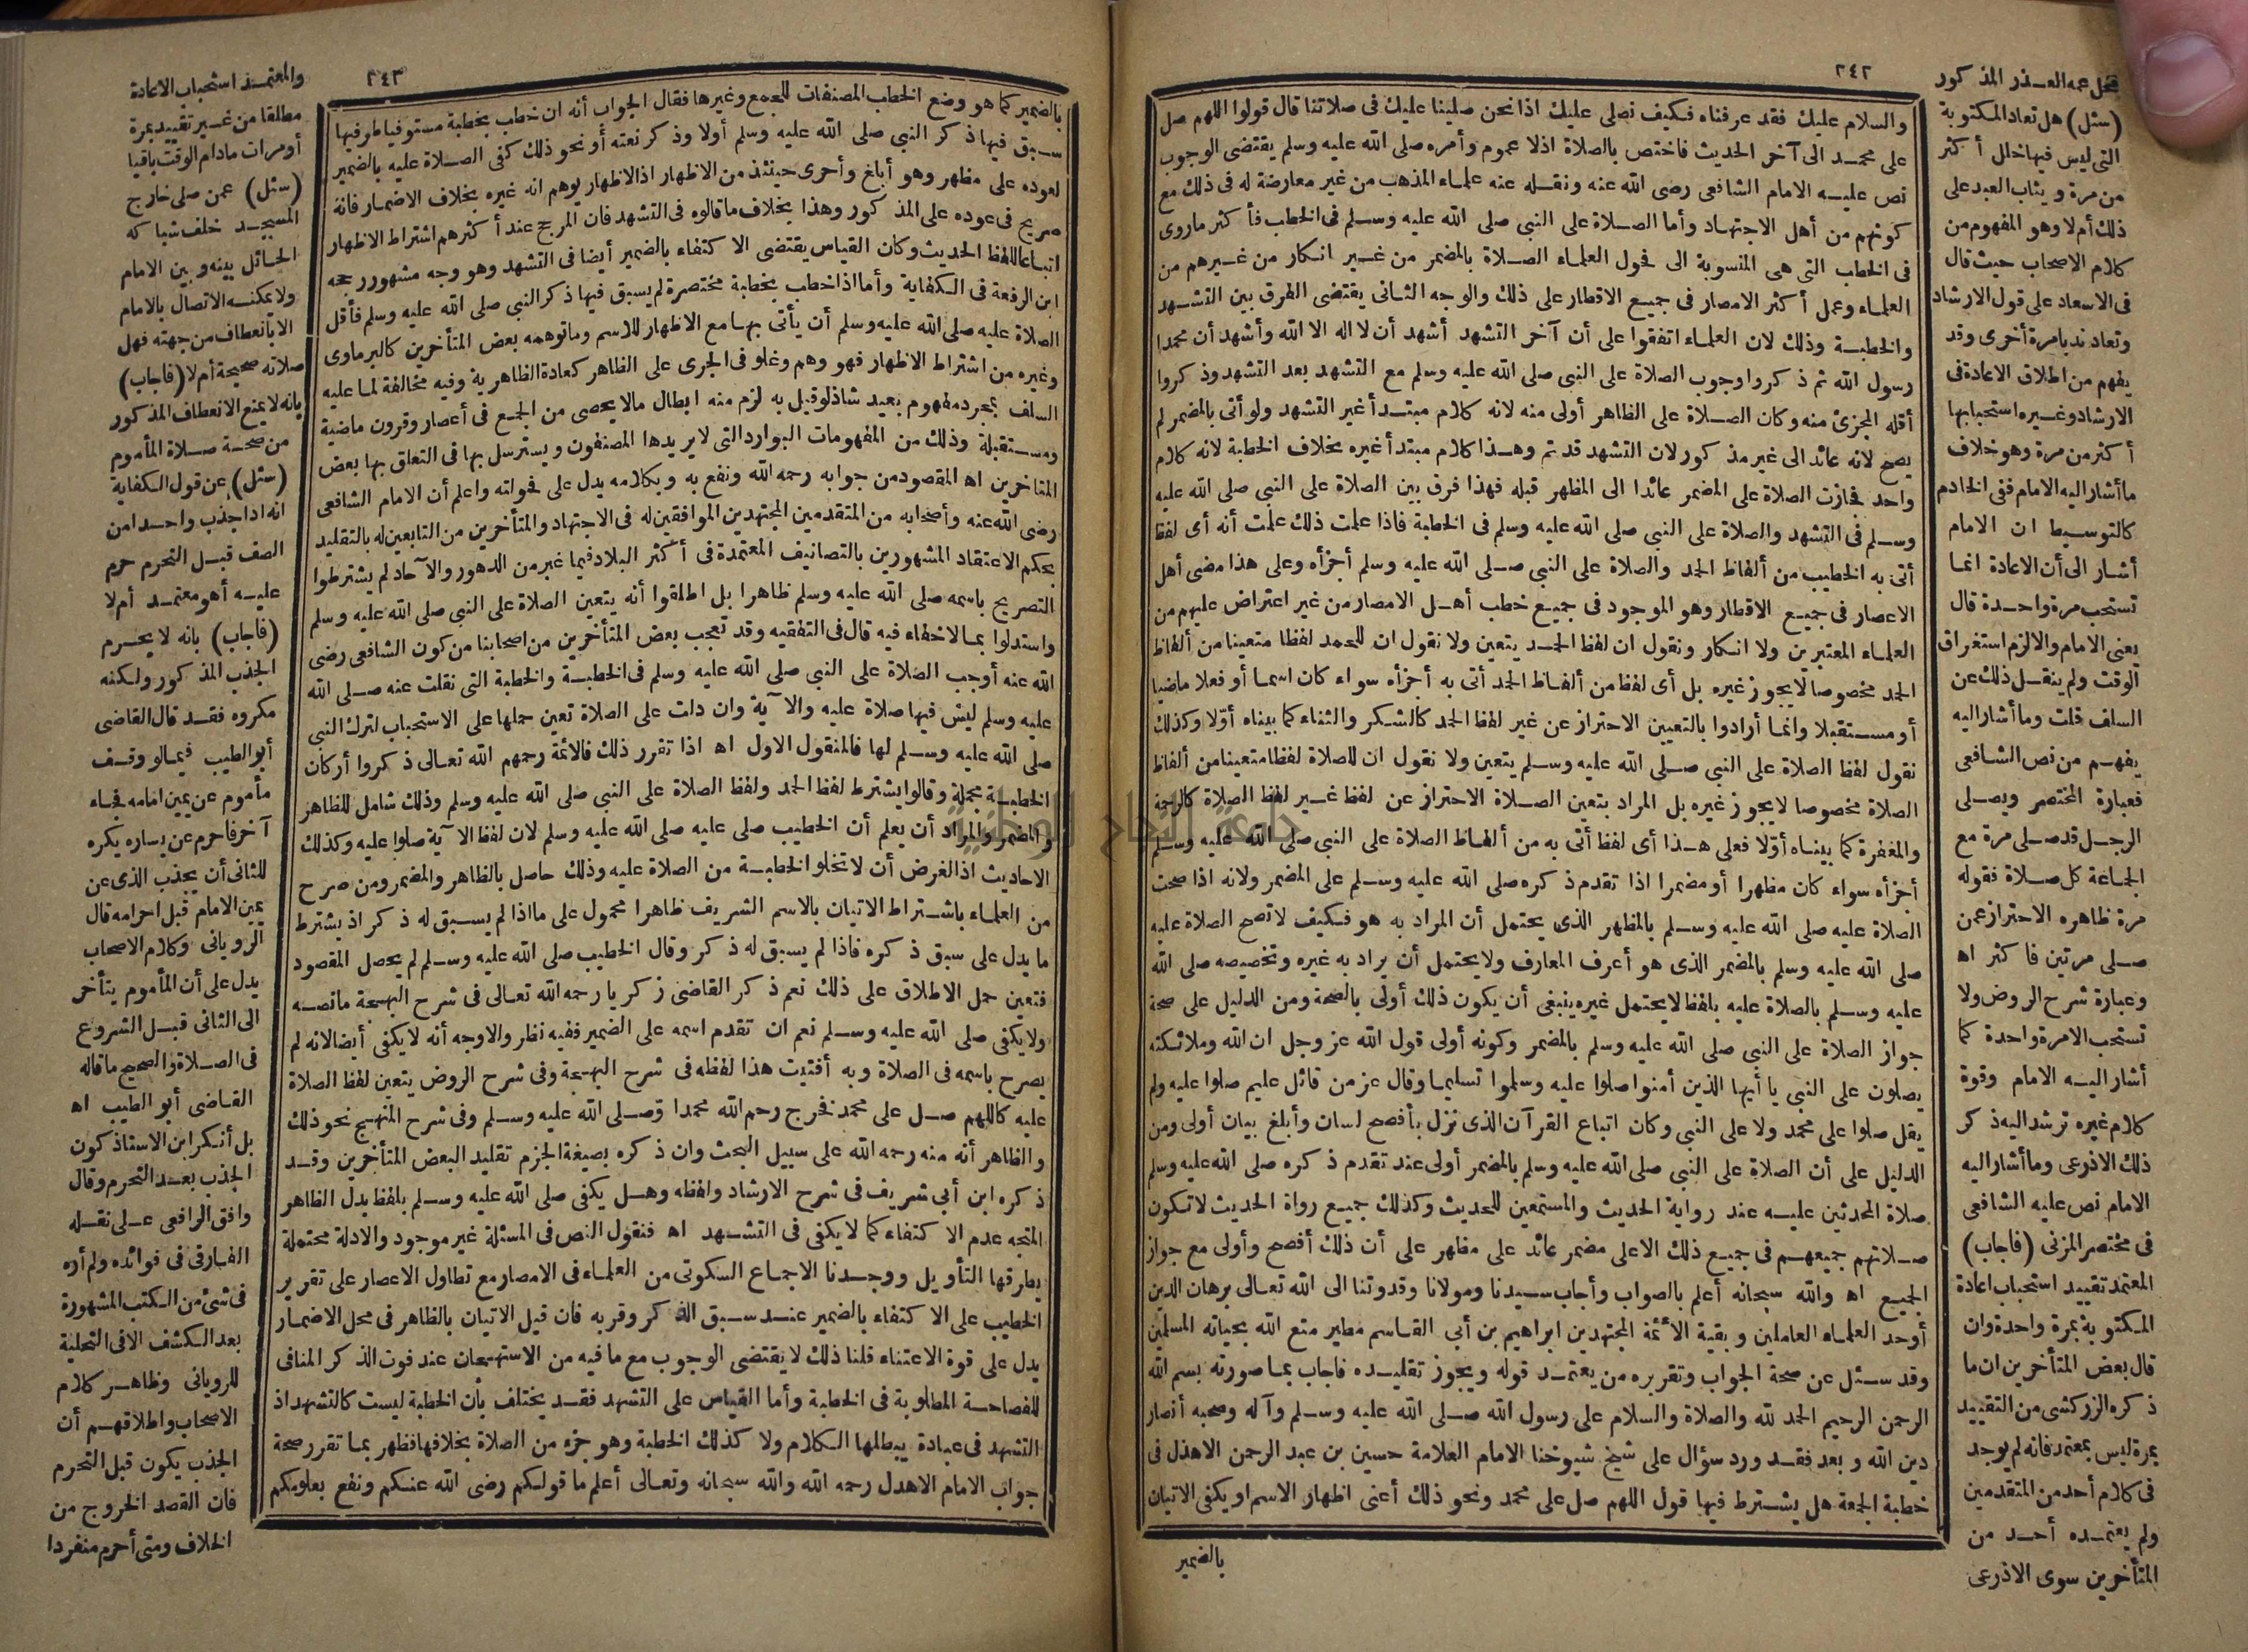 ٢٤٢
والسلام عليك فقد عرفناه فكيف نصلى عليك اذا نحن صلينا عليك فى صلاتنا قال قولوا اللهم صل
على محمد الى آخر الحديث فاختص بالصلاة اذ لا عموم وأمره صلى الله عليه وسلم يقتضى الوجوب
نص عليه الامام الشافعى رضى الله عنه ونقله عنه علماء المذهب من غير معارضة له فى ذلك مع
كونهم من أهل الاجتهاد وأما الصلاة على النبى صلى الله عليه وسلم فى الخطب فأكثر ماروى
فى الخطب التى هى المنسوبة الى فحول العلماء الصلاة بالمضمر من غير انكار من غيرهم من
العلماء وعمل أكثر الامصار فى جميع الاقطار على ذلك والوجه الثانى يقتضى الفرق بين التشهد
والخطبة وذلك لان العلماء اتفقوا على أن آخر التشهد أشهد أن لا اله الا الله وأشهد أن محمدا
رسول الله ثم ذكروا وجوب الصلاة على النبى صلى الله عليه وسلم مع التشهد بعد التشهد وذكروا
أقله المجزئ منه وكان الصلاة على الظاهر أولى منه لانه كلام مبتدأ غير التشهد ولو أتى بالمضمر لم
يصح لانه عائد الى غير مذكور لان التشهد قد تم وهذا كلام مبتدأ غيره بخلاف الخطبة لانه كلام
واحد فجازت الصلاة على المضمر عائدا الى المظهر قبله فهذا فرق بين الصلاة على النبى صلى الله عليه
وسلم فى التشهد والصلاة على النبى صلى الله عليه وسلم فى الخطبة فاذا علمت ذلك علمت أنه أى لفظ
أتى به الخطيب من ألفاظ الحمد والصلاة على النبى صلى الله عليه وسلم أجزأه وعلى هذا مضى أهل
الاعصار فى جميع الاقطار وهو الموجود فى جميع خطب أهل الامصار من غير اعتراض عليهم من
العلماء المعتبرين ولا انكار ونقول ان لفظ الحمد يتعين ولا نقول ان للحمد لفظا متعينا من ألفاظ
الحمد مخصوصا لا يجوز غيره بل أى لفظ من ألفاظ الحمد أتى به أجزأه سواء كان اسما أو فعلا ماضيا
أو مستقبلا وانما أرادوا بالتعيين الاحتراز عن غير لفظ الحمد كالشكر والثناء كما بيناه أولا وكذلك
نقول لفظ الصلاة على النبى صلى الله عليه وسلم يتعين ولا نقول ان للصلاة لفظا متعينا من ألفاظ
الصلاة مخصوصا لا يجوز غيره بل المراد بتعين الصلاة الاحتراز عن لفظ غير لفظ الصلاة كالرحمة
والمغفرة كما بيناه أولا فعلى هذا أى لفظ أتى به من ألفاظ الصلاة على النبى صلى الله عليه وسلم
أجزأه سواء كان مظهرا أو مضمرا اذا تقدم ذكره صلى الله عليه وسلم على المضمر ولانه اذا صحت
الصلاة عليه صلى الله عليه وسلم بالمظهر الذى يحتمل أن المراد به هو فكيف لا تصح الصلاة عليه
صلى الله عليه وسلم بالمضمر الذى هو أعرف المعارف ولا يحتمل أن يراد به غيره وتخصيصه صلى الله
عليه وسلم بالصلاة عليه بلفظ لا يحتمل غيره ينبغى أن يكون ذلك أولى بالصحة ومن الدليل على صحة
جواز الصلاة على النبى صلى الله عليه وسلم بالمضمر وكونه أولى قول الله عز وجل ان الله وملائكته
يصلون على النبى يا أيها الذين آمنوا صلوا عليه وسلموا تسليما وقال عز من قائل عليم صلوا عليه ولم
يقل صلوا على محمد ولا على النبى وكان اتباع القرآن الذى نزل بأفصح لسان وأبلغ بيان أولى ومن
الدليل على أن الصلاة على النبى صلى الله عليه وسلم بالمضمر أولى عند تقدم ذكره صلى الله عليه وسلم
صلاة المحدثين عليه عند رواية الحديث والمستمعين للحديث وكذلك جميع رواة الحديث لا تكون
صلاتهم جميعهم فى جميع ذلك الا على مضمر عائد على مظهر على أن ذلك أفصح وأولى مع جواز
الجميع اه والله سبحانه أعلم بالصواب وأجاب سيدنا ومولانا وقدوتنا الى الله تعالى برهان الدين
أوحد العلماء العاملين وبقية الأئمة المجتهدين ابراهيم بن أبى القاسم مطير متع الله بحياته المسلمين
وقد سئل عن صحة الجواب وتقريره من يعتمد قوله ويجوز تقليده فاجاب بما صورته بسم الله
الرحمن الرحيم الحمد لله والصلاة والسلام على رسول الله صلى الله عليه وسلم وآله وصحبه أنصار
دين الله وبعد فقد ورد سؤال على شيخ شيوخنا الامام العلامة حسين بن عبد الرحمن الاهدل فى
خطبة الجمعة هل يشترط فيها قول اللهم صل على محمد ونحو ذلك أعنى اظهار الاسم او يكفى الاتيان
بالضمير
فحل عمه العذر المذكور
(سئل) هل تعاد المكتوبة
التى ليس فيها خلل أكثر
من مرة ويثاب العبد على
ذلك أم لا وهو المفهوم من
كلام الاصحاب حيث قال
فى الاسعاد على قول الارشاد
وتعاد ندبا مرة أخرى وقد
يفهم من اطلاق الاعادة فى
الارشاد وغيره استحبابها
أكثر من مرة وهو خلاف
ما أشار اليه الامام ففى الخادم
كالتوسيط ان الامام
أشار الى أن الاعادة انما
تستحب مرة واحدة قال
يعنى الامام والا لزم استغراق
الوقت ولم ينقل ذلك عن
السلف قلت وما أشار اليه
يفهم من نص الشافعى
فعبارة المختصر ويصلى
الرجل قد صلى مرة مع
الجماعة كل صلاة فقوله
مرة ظاهره الاحتراز عمن
صلى مرتين فاكثر اه
وعبارة شرح الروض ولا
تستحب الا مرة واحدة كما
أشار اليه الامام وقوة
كلام غيره ترشد اليه ذكر
ذلك الاذرعى وما أشار اليه
الامام نص عليه الشافعى
فى مختصر المزنى (فاجاب)
المعتمد تقييد استحباب اعادة
المكتوبة بمرة واحدة وان
قال بعض المتأخرين ان ما
ذكره الزركشى من التقييد
بمرة ليس بمعتمد فانه لم يوجد
فى كلام أحد من المتقدمين
ولم يعتمده أحد من
المتأخرين سوى الاذرعى
٢٤٣
بالضمير كما هو وضع الخطب المصنفات للجمع وغيرها فقال الجواب أنه ان خطب بخطبة مستوفيا طرفيها
سبق فيها ذكر النبى صلى الله عليه وسلم أولا وذكر نعته أو نحو ذلك كفى الصلاة عليه بالضمير
لعوده على مظهر وهو أبلغ وأحرى حينئذ من الاظهار اذ الاظهار يوهم انه غيره بخلاف الاضمار فانه
صريح فى عوده على المذكور وهذا بخلاف ما قالوه فى التشهد فان المرجح عند أكثرهم اشتراط الاظهار
اتباعا للفظ الحديث وكان القياس يقتضى الاكتفاء بالضمير أيضا فى التشهد وهو وجه مشهور رجحه
ابن الرفعة فى الكفاية وأما اذا خطب بخطبة مختصرة لم يسبق فيها ذكر النبى صلى الله عليه وسلم فأقل
الصلاة عليه صلى الله عليه وسلم أن يأتى بها مع الاظهار للاسم وما توهمه بعض المتأخرين كالبرماوى
وغيره من اشتراط الاظهار فهو وهم وغلو فى الجرى على الظاهر كعادة الظاهرية وفيه مخالفة لما عليه
السلف بمجرد مفهوم بعيد شاذ لو قبل به لزم منه ابطال ما لا يحصى من الجمع فى أعصار وقرون ماضية
ومستقبلة وذلك من المفهومات البوارد التى لا يريدها المصنفون ويسترسل بها فى التعلق بها بعض
المتأخرين اه المقصود من جوابه رحمه الله ونفع به وبكلامه يدل على فحولته واعلم أن الامام الشافعى
رضى الله عنه وأصحابه من المتقدمين المجتهدين الموافقين له فى الاجتهاد والمتأخرين من التابعين له بالتقليد
بحكم الاعتقاد المشهورين بالتصانيف المعتمدة فى أكثر البلاد فيما غبر من الدهور والآحاد لم يشترطوا
التصريح باسمه صلى الله عليه وسلم ظاهرا بل اطلقوا أنه يتعين الصلاة على النبى صلى الله عليه وسلم
واستدلوا بما لا خفاء فيه قال فى التفقيه وقد تعجب بعض المتأخرين من اصحابنا من كون الشافعى رضى
الله عنه أوجب الصلاة على النبى صلى الله عليه وسلم فى الخطبة والخطبة التى نقلت عنه صلى الله
عليه وسلم ليس فيها صلاة عليه والآية وان دلت على الصلاة تعين حملها على الاستحباب لترك النبى
صلى الله عليه وسلم لها فالمنقول الاول اه اذا تقرر ذلك فالائمة رحمهم الله تعالى ذكروا أركان
الخطبة مجملة وقالوا يشترط لفظ الحمد ولفظ الصلاة على النبى صلى الله عليه وسلم وذلك شامل للظاهر
والمضمر والمراد أن يعلم أن الخطيب صلى عليه صلى الله عليه وسلم لان لفظ الآية صلوا عليه وكذلك
الاحاديث اذ الغرض أن لا تخلو الخطبة من الصلاة عليه وذلك حاصل بالظاهر والمضمر ومن صرح
من العلماء باشتراط الاتيان بالاسم الشريف ظاهرا محمول على ما اذا لم يسبق له ذكر اذ يشترط
ما يدل على سبق ذكره فاذا لم يسبق له ذكر وقال الخطيب صلى الله عليه وسلم لم يحصل المقصود
فتعين حمل الاطلاق على ذلك نعم ذكر القاضى زكريا رحمه الله تعالى فى شرح البهجة ما نصه
ولا يكفى صلى الله عليه وسلم نعم ان تقدم اسمه على الضمير ففيه نظر والاوجه أنه لا يكفى أيضا لانه لم
يصرح باسمه فى الصلاة وبه أفتيت هذا لفظه فى شرح البهجة وفى شرح الروض يتعين لفظ الصلاة
عليه كاللهم صل على محمد فخرج رحم الله محمدا وصلى الله عليه وسلم وفى شرح المنهج نحو ذلك
والظاهر أنه منه رحمه الله على سبيل البحث وان ذكره بصيغة الجزم تقليد البعض المتأخرين وقد
ذكره ابن أبى شريف فى شرح الارشاد ولفظه وهل يكفى صلى الله عليه وسلم بلفظ يدل الظاهر
المتجه عدم الاكتفاء كما لا يكفى فى التشهد اه فنقول النص فى المسئلة غير موجود والادلة محتملة
يطرقها التأويل ووجدنا الاجماع السكوتى من العلماء فى الامصار مع تطاول الاعصار على تقرير
الخطيب على الاكتفاء بالضمير عند سبق الذكر وقربه فان قيل الاتيان بالظاهر فى محل الاضمار
يدل على قوة الاعتناء قلنا ذلك لا يقتضى الوجوب مع ما فيه من الاستهجان عند فوت الذكر المنافى
للفصاحة المطلوبة فى الخطبة وأما القياس على التشهد فقد يختلف بأن الخطبة ليست كالتشهد اذ
التشهد فى عبادة يبطلها الكلام ولا كذلك الخطبة وهو جزء من الصلاة بخلافها فظهر بما تقرر صحة
جواب الامام الاهدل رحمه الله والله سبحانه وتعالى أعلم ما قولكم رضى الله عنكم ونفع بعلومكم
والمعتمد استحباب الاعادة
مطلقا من غير تقييد بمرة
أو مرات مادام الوقت باقيا
(سئل) عمن صلى خارج
المسجد خلف شباكه
الحائل بينه وبين الامام
ولا يمكنه الاتصال بالامام
الا بانعطاف من جهته فهل
صلاته صحيحة أم لا (فاجاب)
بانه لا يمنع الانعطاف المذكور
من صحة صلاة المأموم
(سئل) عن قول الكفاية
انه اذا جذب واحدا من
الصف قبل التحرم حرم
عليه أهو معتمد أم لا
(فاجاب) بانه لا يحرم
الجذب المذكور ولكنه
مكروه فقد قال القاضى
أبو الطيب فيما لو وقف
مأموم عن يمين امامه فجاء
آخر فاحرم عن يساره يكره
للثانى أن يجذب الذى عن
يمين الامام قبل احرامه قال
الرويانى وكلام الاصحاب
يدل على أن المأموم يتأخر
الى الثانى قبل الشروع
فى الصلاة والصحيح ما قاله
القاضى أبو الطيب اه
بل أنكر ابن الاستاذ كون
الجذب بعد التحرم وقال
وافق الرافعى على نقله
الفارقى فى فوائده ولم أره
فى شئ من الكتب المشهورة
بعد الكشف الا فى التحلية
للرويانى وظاهر كلام
الاصحاب واطلاقهم أن
الجذب يكون قبل التحرم
فان القصد الخروج من
الخلاف ومتى أحرم منفردا